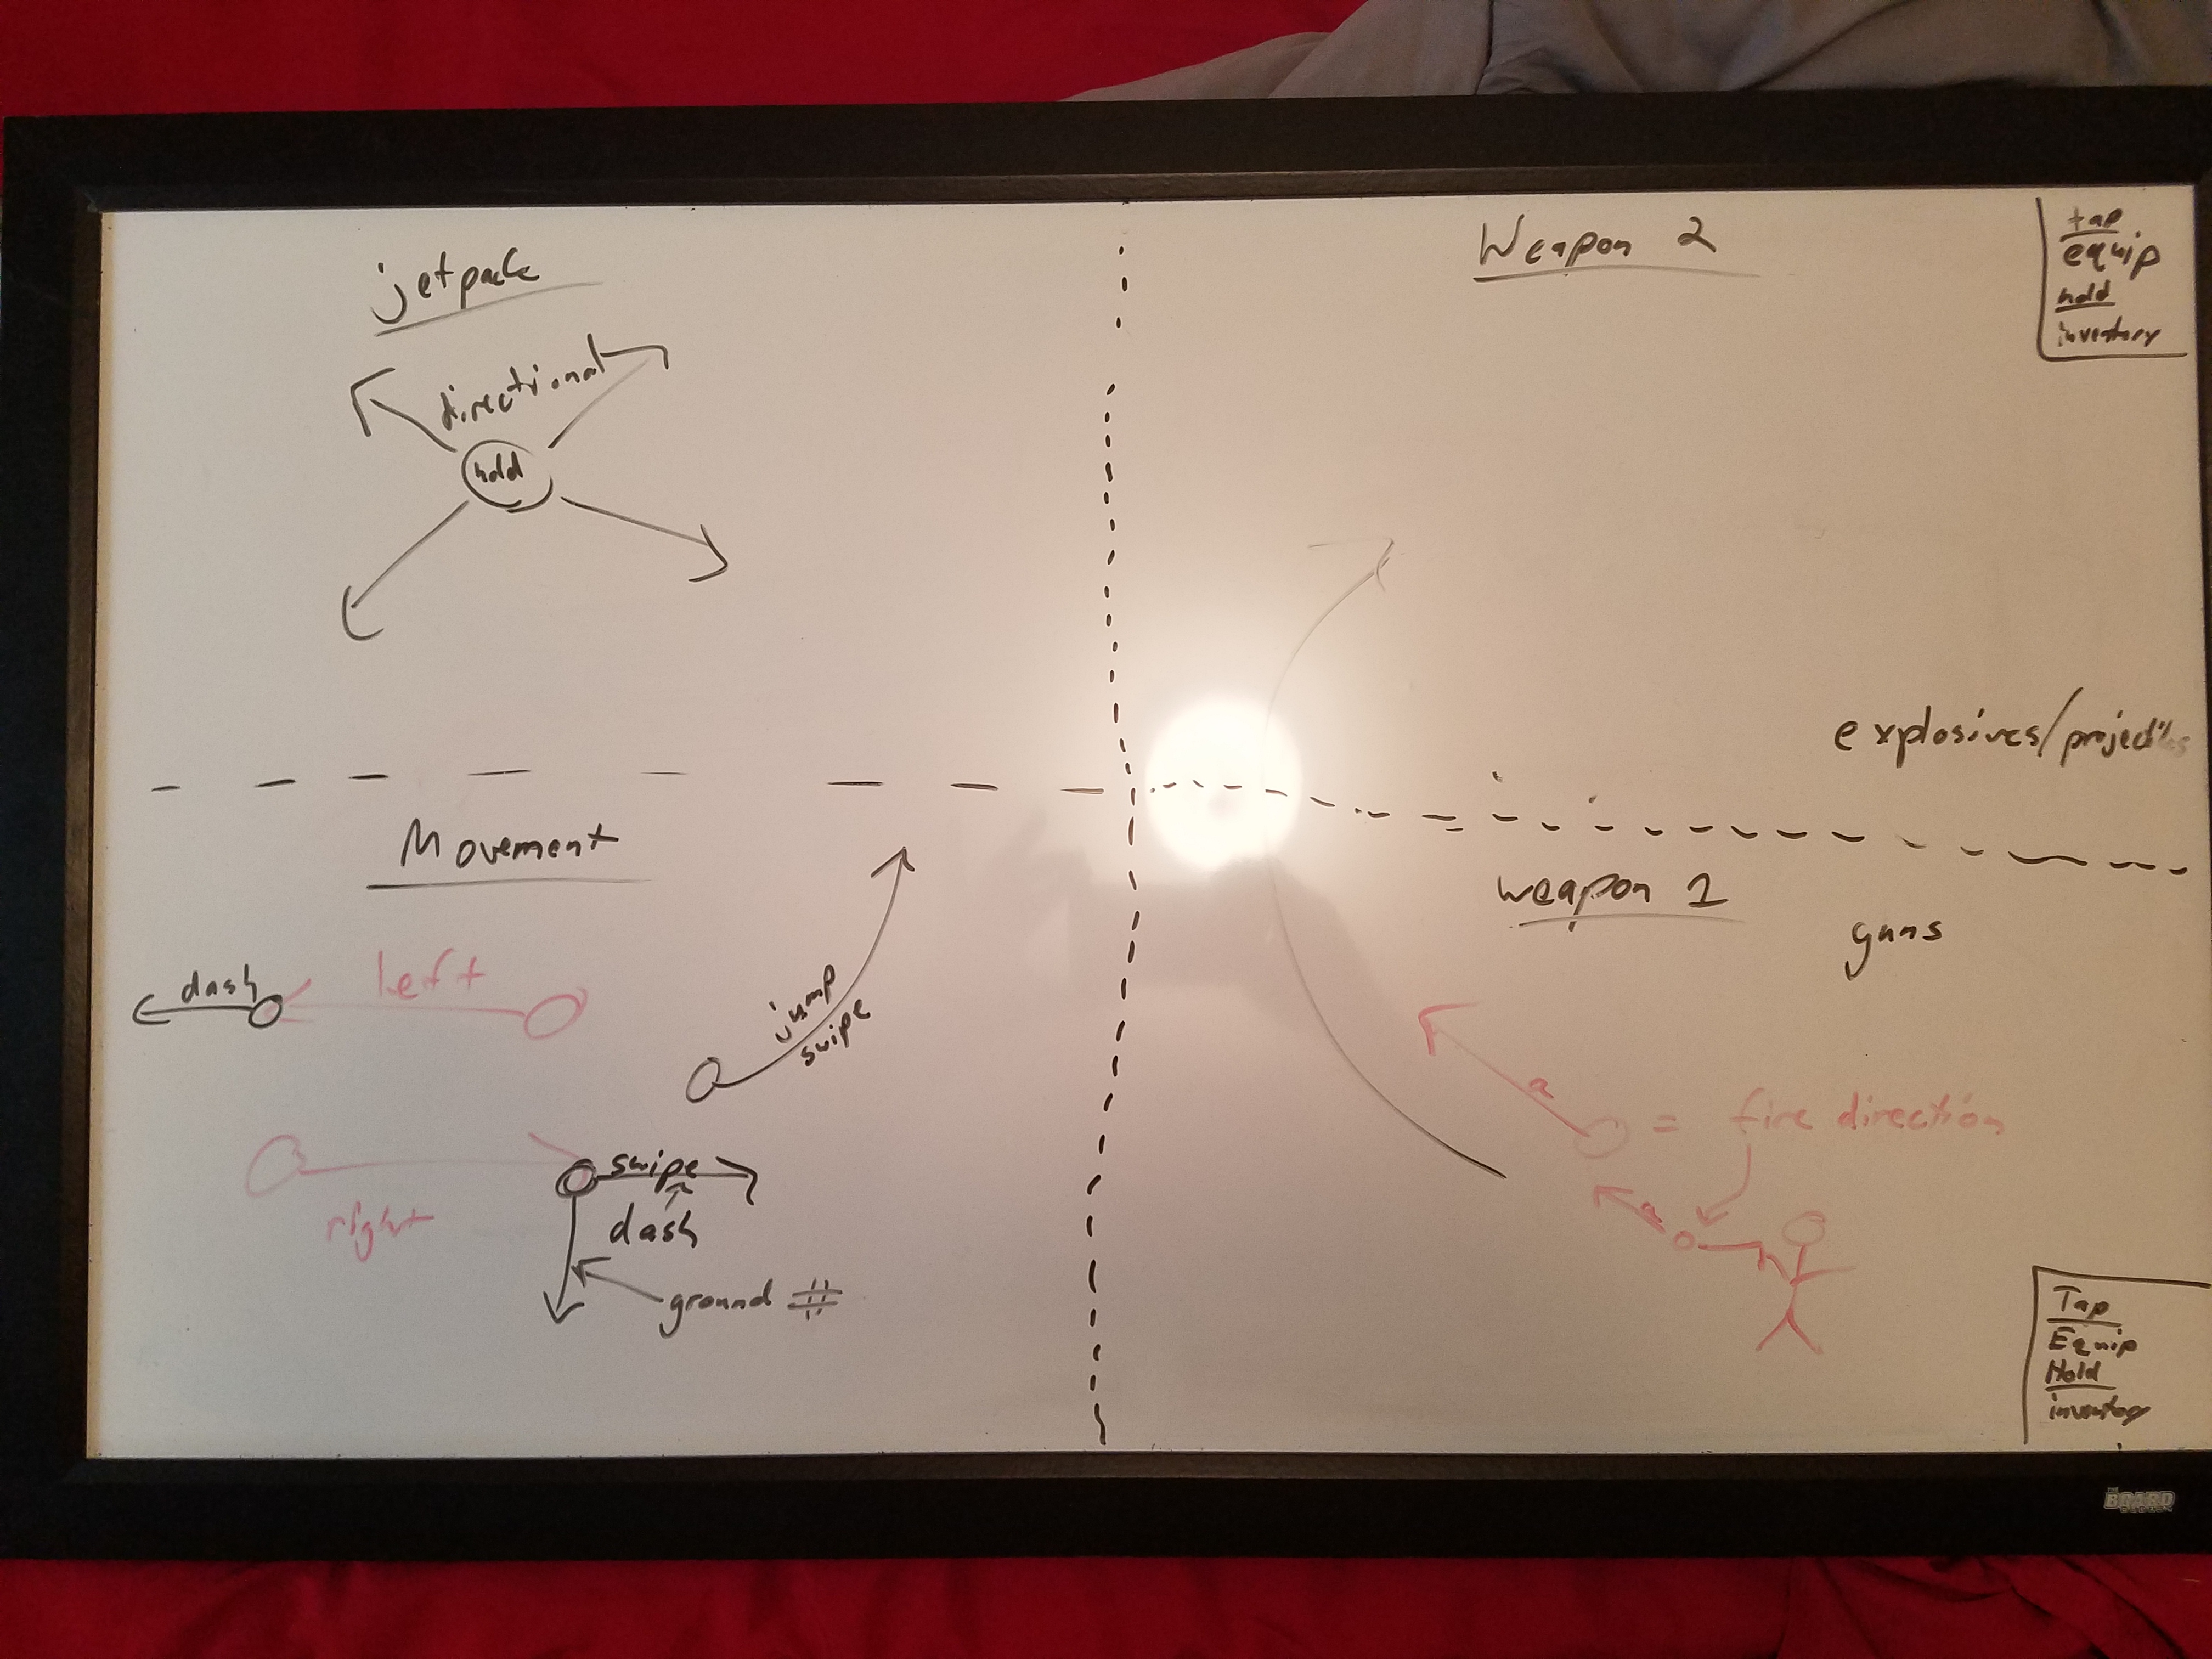 jetpack
directional
hold
Weapon 2
tap
equip
hold
inventory
explosives/projectiles
Movement
dash
left
jump
swipe
right
swipe
dash
ground #
weapon 1
guns
a
= fire direction
a
Tap
Equip
Hold
inventory
BOARD